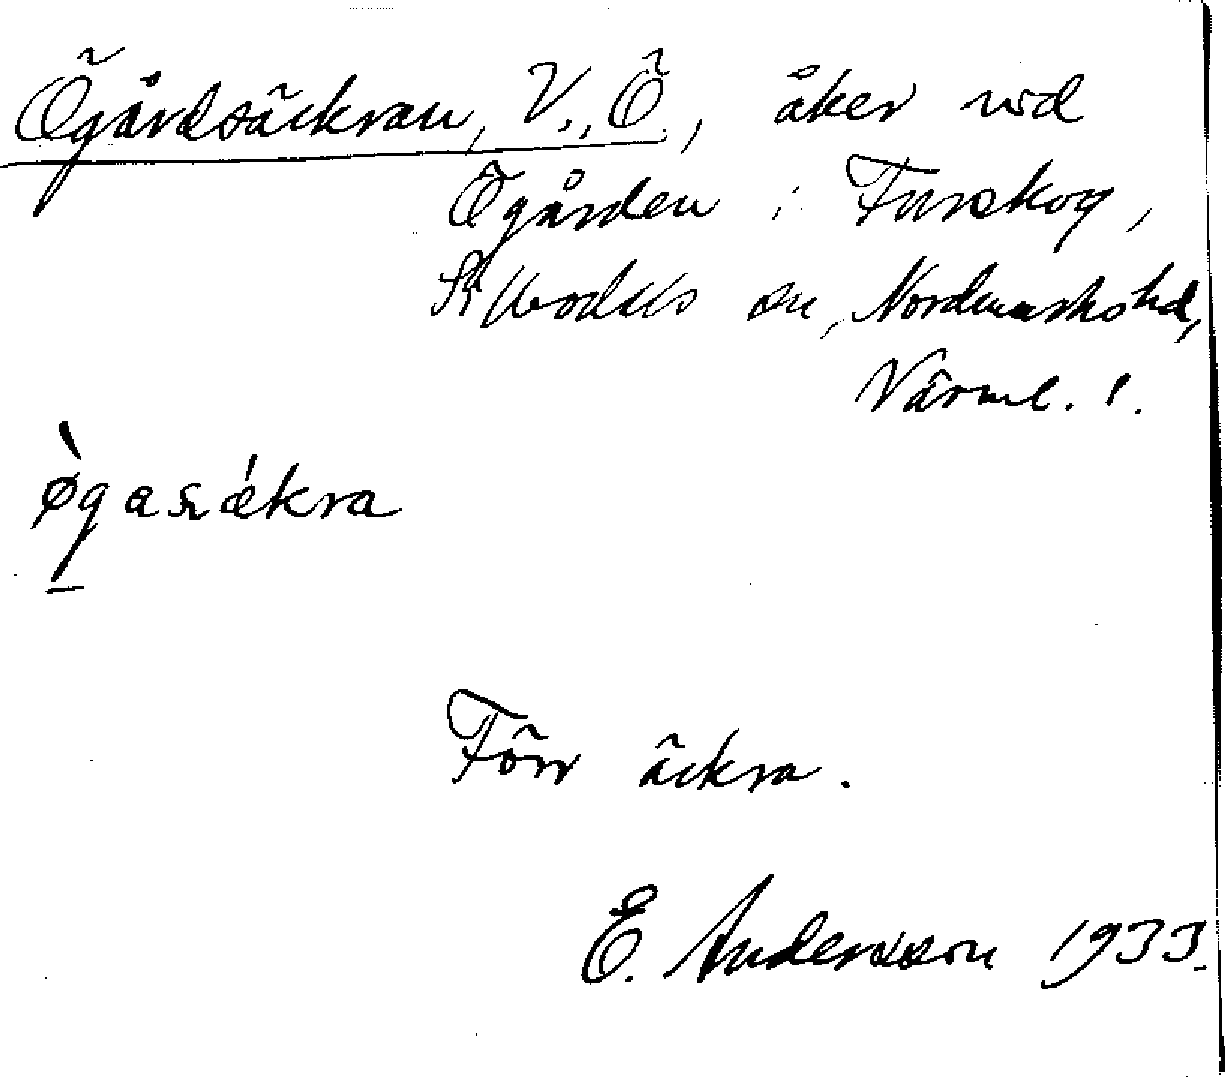 Ögårdsäckran, V., Ö., åker vid
Ögården i Furskog,
Sillbodals sn, Nordmarks hd,
Värml. !.
ø̀gasǽkra
Förr äckra.
E. Andersson 1933.